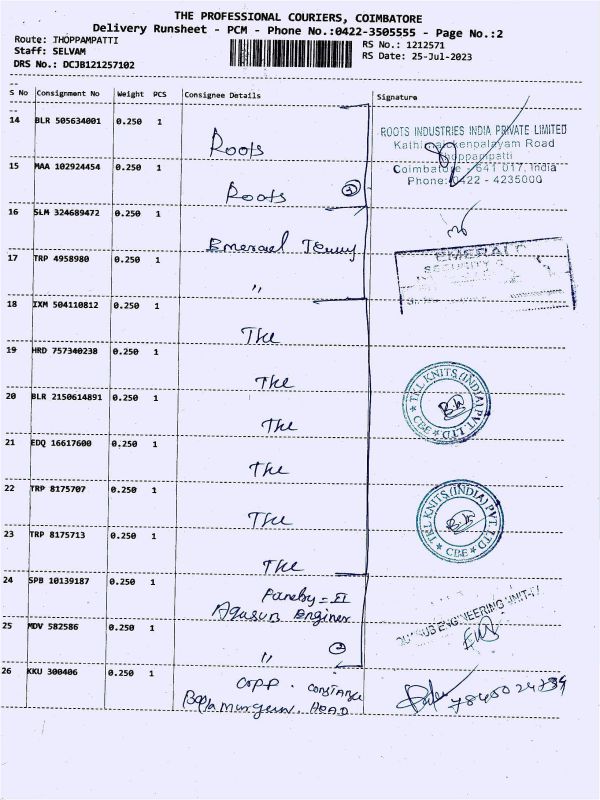 THE PROFESSIONAL COURIERS, COIMBATORE
Delivery Runsheet - PCM - Phone No.:0422-3505555 - Page No.:2
Route: THOPPAMPATTI
Staff: SELVAM
DRS No.: DCJB121257102
RS No.: 1212571
RS Date: 25-Jul-2023
S No Consignment No Weight PCS Consignee Details Signature
14 BLR 505634001 0.250 1 Roots
ROOTS INDUSTRIES INDIA PRIVATE LIMITED
Kathirnaickenpalayam Road
Thoppampatti
Coimbatore - 641 017, India
Phone: 0422 - 4235000
15 MAA 102924454 0.250 1 Roots
16 SLM 324689472 0.250 1 Emerael
EMERALD
SECURITY
17 TRP 4958980 0.250 1 "
18 IXM 504110812 0.250 1 The
19 HRD 757340238 0.250 1 The
TKL KNITS (INDIA) PVT. LTD
CBE
20 BLR 2150614891 0.250 1 The
21 EDQ 16617600 0.250 1 The
22 TRP 8175707 0.250 1 The
TKL KNITS (INDIA) PVT. LTD
CBE
23 TRP 8175713 0.250 1 The
24 SPB 10139187 0.250 1
SUB ENGINEERING UNIT-IV
25 MDV 582586 0.250 1 "
26 KKU 300406 0.250 1 opp.